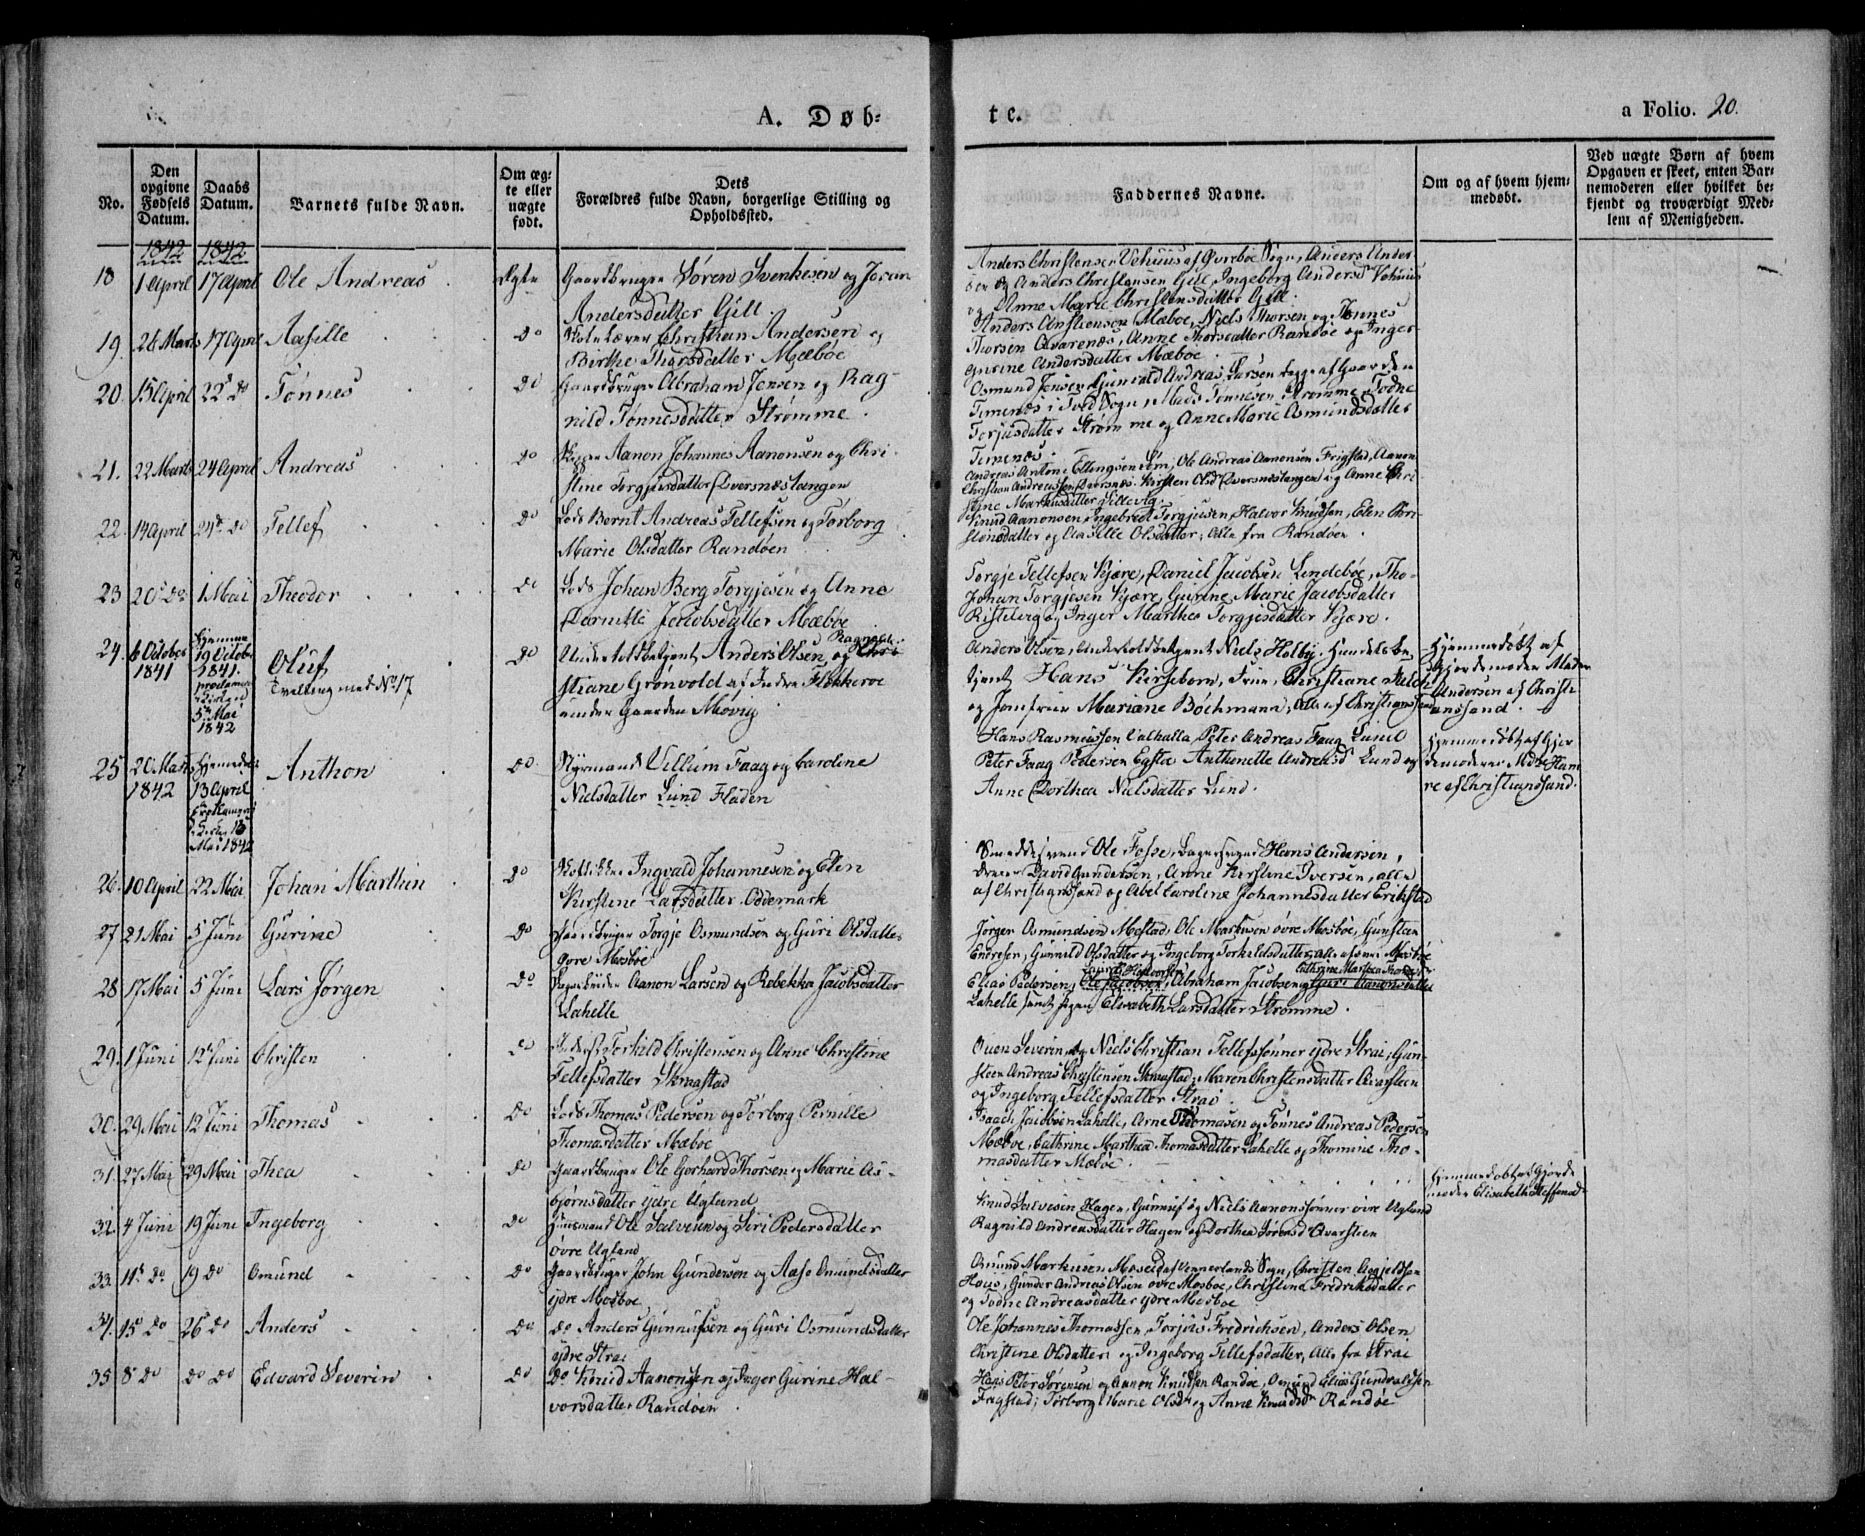 A. Døb-
te.
a Folio. 20.
No.
Den opgivne Fødsels Datum.
Daabs Datum.
Barnets fulde Navn.
Om ægte eller uægte født.
Dets Forældres fulde Navn, borgerlige Stilling og Opholdssted.
Faddernes Navne.
Om og af hvem hjemmedøbt.
Ved uægte Børn af hvem Opgaven er skeet, enten Barnemoderen eller hvilket bekjendt og troværdigt Medlem af Menigheden.
1842 1842
18 1 April 17 April Ole Andreas Ægte Gaardbruger Søren Svenkesen og Joran
Andersdatter Gill
og Anders Christensen Gill, Ingeborg Andersd
og Anne Marie Christensdatter Gill.
19. 26 Marts 17 April Aasille Do Christian Andersen og
Birthe Thorsdatter Mæbøe
Mæbøe, Niels Thorsen og Tønnes
Thorsen Qvarenæs, Anne Thorsdatter Randøe og Inger
Gurine Andersdatter Mæbøe
20. 15 April 22 do Tønnes Do Gaardbruger Abraham Jensen og Rag-
nild Tønnesdatter Strømme
Osmund Jensen, Gunvald Andreas Larsen begge af Gaarden
Timenæs i Tved Sogn, Mads Tønnesen Strømme, Todne
Torjusdatter Strømme og Anne Marie Osmundsdatter
Timenæs.
21. 22 Marts 24 April Andreas Do Aanon Johannes Aanonsen og Chri-
stine Torgjusdatter Dversnæstangen
Andreas Anton Ellingsen Søm, Ole Andreas Aanonsen Frigstad, Aanon
Christian Andreassen Dversnæs, Kirsten Olsd Dversnestangen og Anne Chri
stine Markusdatter
22. 14 April 24 do Tellef Do Lods Bernt Andreas Tellefsen og Torborg
Marie Olsdatter Randøen
Knud Aanonsen, Ingebret Torgjusen, Halvor Knudsen, Elen Chri-
stensdatter og Aasille Olsdatter, Alle fra Randøen.
23 20 do 1 Mai Theodor Do Lods Johan Berg Torgjesen og Anne
Pernille Jacobsdatter Mæbøe
Torgje Tellefsen Kjære, Daniel Jacobsen Lindebøe, Tho-
Johan Torgjesen Kjære, Gurine Marie Jacobsdatter
og Inger Marthea Torgjesdatter Kjære.
24. 6 October 1841 Hjemme 19 October 1841. 5 Mai 1842 Oluf
Tvilling med No 17
Do UnderToldbetjent Anders Olsen og Ragnild Chri-
stiane Grønvold af Indre Flekkerøe
under Gaarden Møvig
Anders Olsen, Undertoldbetjent Niels Holby, Handelsbe-
tjent Hans Kirseborn, Frue Christiane
og Jomfrue Mariane Böchmann, Alle af Christianssand
Hjemmedøbt af
Gjordemoder
Andersen af Christi-
anssand.
25 20 Marts 1842 Hjemmedøbt 13 April Mai 1842 Anthon Do Styrmand Villum Faag og Caroline
Nielsdatter Lund Fladen
Hans Rasmussen Valhalla, Peter Andreas Faag Lund
Peter Faag Pedersen Egsta Anthonette Andreasd Lund og
Anne Dorthea Nielsdatter Lund.
Hjemmedøbt af Gjor
demoder Mde Ham
re af Christianssand.
26. 10 April 22 Mai Johan Marthin Do Ingvald Johannesen og Elen
Kirstine Larsdatter Oddernark
Smeddesvend Ole Fosse, Bagersvend Hans Andersen,
David Gundersen, Anne Kirstine Iversen, alle
af Christianssand og Abel Caroline Johannesdatter Erikstad
27 21 Mai 5 Juni Gurine Do Gaardbruger Torgje Osmundsen og Guri Olsdatter
øvre Mosbøe
Jørgen Osmundsen Mostad, Ole Markusen øvre Mosbøe, Gunsteen
Endresen, Gunild Olsdatter og Ingeborg Torkildsdatter, alle af øvre Mosbøe
28 17 Mai 5 Juni Lars Jørgen Do Aanon Larsen og Rebekka Jacobsdatter
Lahelle
Elias Pedersen, Ole Jacobsen, Abraham Jacobsen og Guri Aanonsdatter
Lahelle samt Pigen Elisabeth Larsdatter Strømme.
29. 1 Juni 12 Juni Christen Do Torkild Christensen og Anne Christine
Tellefsdatter Skraastad
Ouen Severin og Niels Christian Tellefssønner ydre Strai, Gun-
steen Andreas Christensen Skraastad, Maren Christensdatter Qvarsteen
og Ingeborg Tellefsdatter Strai.
30. 29 Mai 12 Juni Thomas Do Lods Thomas Pedersen og Torborg Pernille
Thomasdatter Mæbøe
Isaach Jacobsen Lahelle, Arne Thomasen og Tønnes Andreas Pedersen
Mæbøe, Cathrine Marthea Thomasdatter Lahelle og Thomine Tho-
masdatter Mæbøe.
31. 27 Mai 29 Mai Thea Do Gaardbruger Ole Gerhard Thorsen og Marie As-
bjørnsdatter ydre Augland
Hjemmedøbt af Gjorde
moder Elisabeth Steffensd
32. 4 Juni 19 Juni Ingeborg Do Huusmand Ole Salvesen og Siri Pedersdatter
øvre Augland
Knud Salvesen Hagen, Gunnuf og Niels Aanonssønner øvre Augland
Ragnild Andreasdatter Hagen og Dorthea Sørensd Qvarsteen
33. 11 do 19 do Omund Do Gaardbruger John Gundersen og Aase Omundsdatter
ydre Mosboe
Omund Markusen Moseid af Vennerlands Sogn, Christen Aagjeldsen
Hous, Gunder Andreas Olsen øvre Mosboe, Christine Fredriksdatter
og Todne Andreasdatter ydre Mosboe
34. 15 do 26 do Anders Do do Anders Gunnufsen og Guri Osmundsdatter
ydre Strai
Ole Johannes Thomassen, Torjuis Fredrichsen, Anders Olsen
Christine Olsdatter og Ingeborg Tellefsdatter, Alle fra Strai
35 8 do do do Edvard Severin Do do Knud Aanonsen og Inger Gurine Hal-
vorsdatter Randøen.
Hans Peter Sørensen og Aanon Knudsen Randøe, Osmund Elias Gundvaldsen
Frigstad, Torborg Marie Olsd og Anne Knudsd Randøe